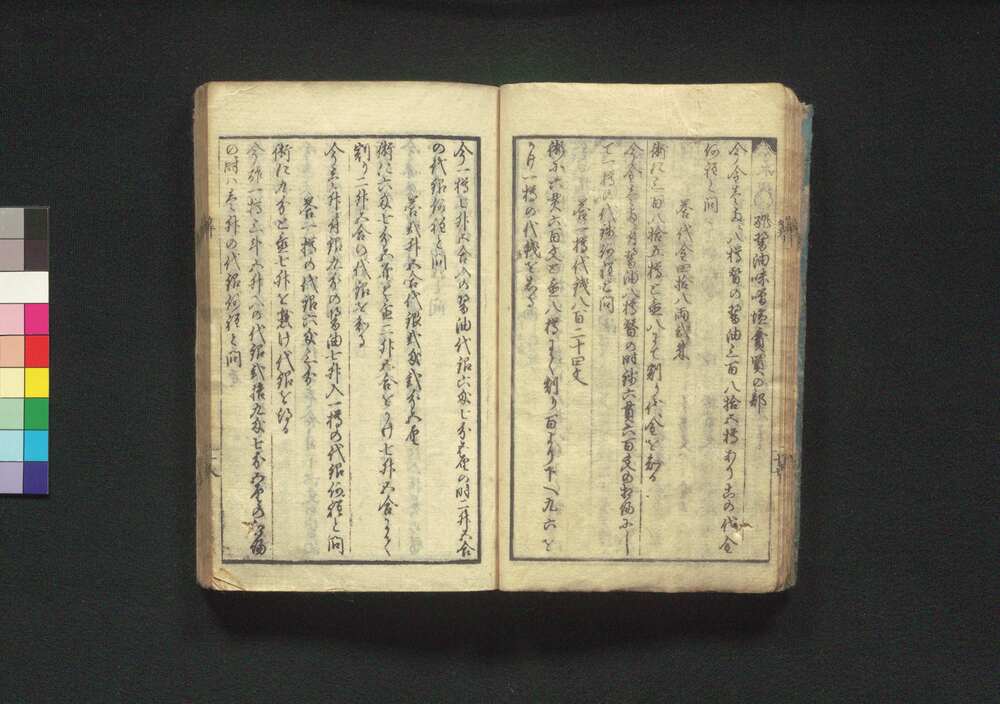 醤油味噌塩賣買の部
今金壱両ニ八樽替の醤油三百八拾五樽あり右の代金
何程と問
答代金四拾八両弐朱
術に三百八拾五樽と置八にて割ハ代金を知る
今金壱両ニ付醤油八樽替の時銭六貫六百文の相場ニして
一樽の代銭何程と問
答一樽代銭八百二十四文
術に六貫六百文と置八樽にて割り百より下へ九六を
かけ一樽の代銭を知る
今一樽七升五合入の醤油代銀六匁七分五厘の時二升五合
の代銀何程と問
答弐升五合代銀弐匁弐分五厘
術に六匁七分五厘と置二升五合をかけ七升五合にて
割り二升五合の代銀を知る
今壱升ニ付銀九分の醤油七升入一樽の代銀何程と問
答一樽の代銀六匁三分
術に九分と置七升を懸け代銀を知る
今
一樽三斗五升入の代銀弐拾九匁七分五厘の相場
の時ハ壱升の代銀何程と問